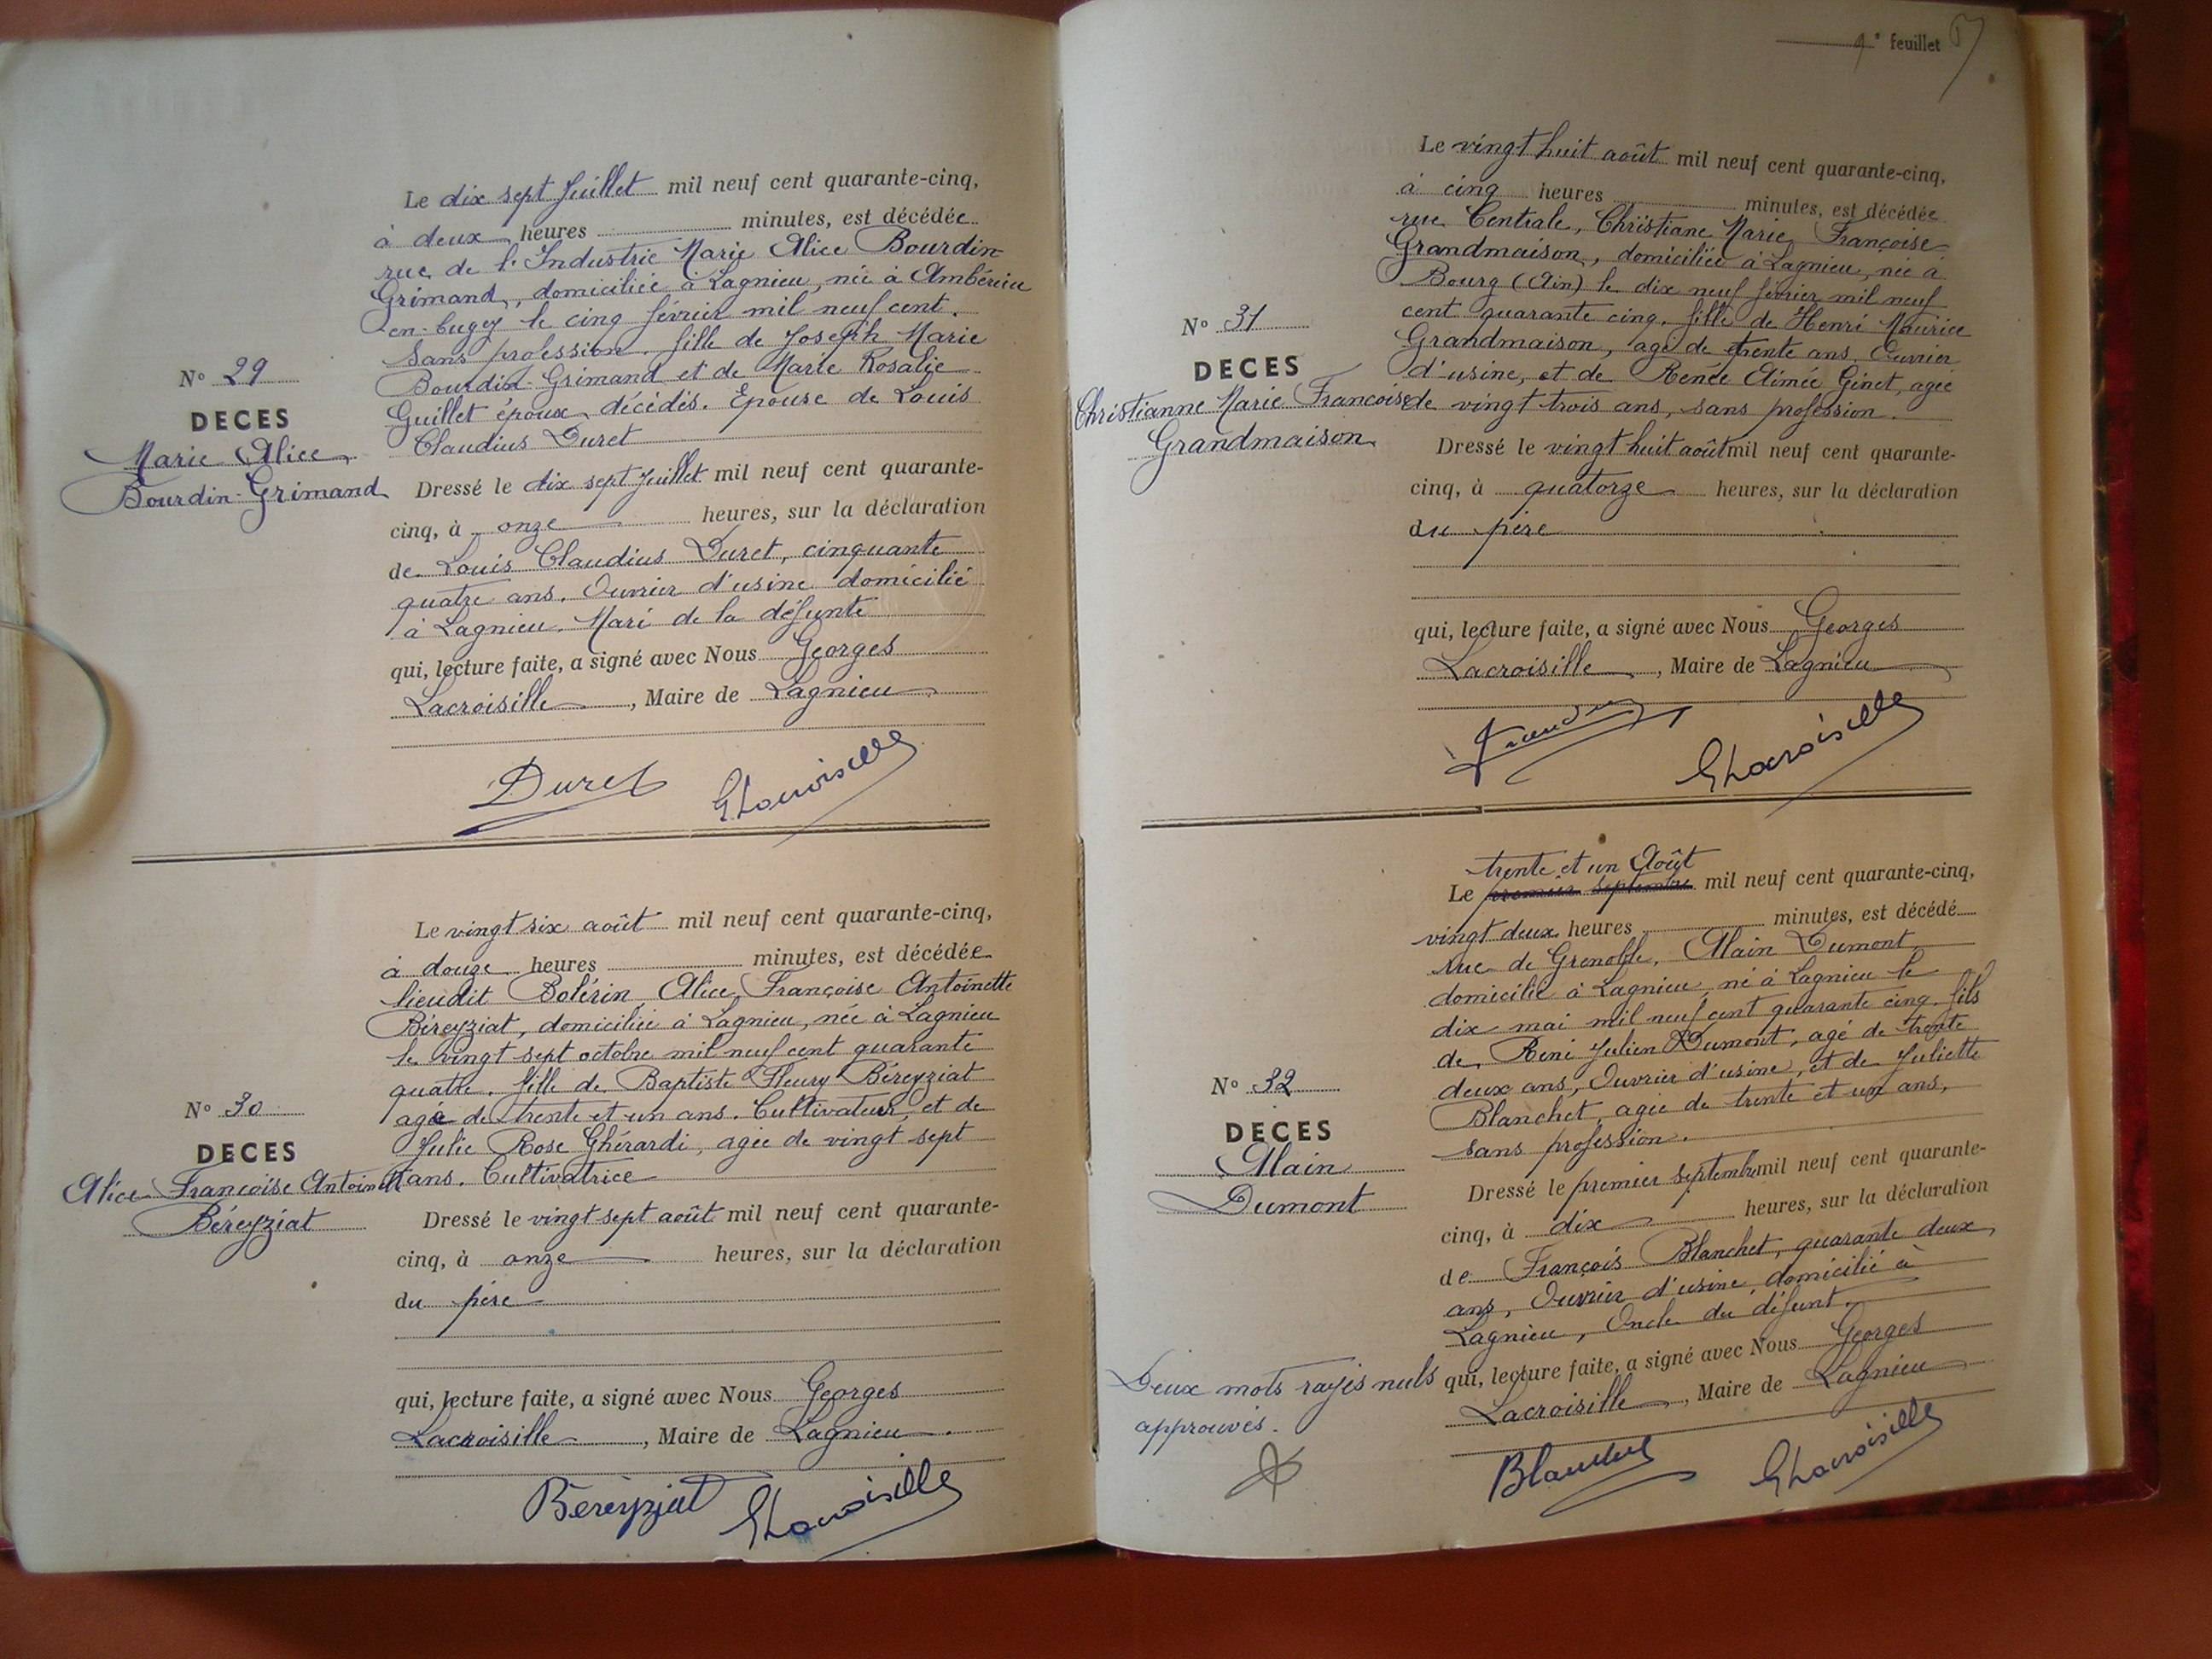 Le dix sept Juillet mil neuf cent quarante-cinq,
à deux heures minutes, est décédée
rue de l'Industrie Marie Alice Bourdin
Grimand, domiciliée à Lagnieu, née à Ambérieu
en-bugey le cinq février mil neuf cent.
Sans profession, fille de Joseph Marie
Bourdin-Grimand et de Marie Rosalie
Guillet époux décédés. Epouse de Louis
Claudius Duret
N° 29
DECES
Marie Alice
Bourdin-Grimand
Dressé le dix sept Juillet mil neuf cent quarante-
cinq, à onze heures, sur la déclaration
de Louis Claudius Duret, cinquante
quatre ans, Ouvrier d'usine domicilié
à Lagnieu. Mari de la défunte
qui, lecture faite, a signé avec Nous Georges
Lacroisille, Maire de Lagnieu
Duret GLacroisille
Le vingt six août mil neuf cent quarante-cinq,
à douze heures minutes, est décédée
lieudit Bolérin, Alice, Françoise Antoinette
Béreyziat, domiciliée à Lagnieu, née à Lagnieu
le vingt sept octobre mil neuf cent quarante
quatre, fille de Baptiste Fleury Béreyziat
agé de trente et un ans. Cultivateur, et de
Julie Rose Ghérardi, agée de vingt sept
ans. Cultivatrice
N° 30
DECES
Alice Françoise Antoinette
Béreyziat
Dressé le vingt sept août mil neuf cent quarante-
cinq, à onze heures, sur la déclaration
du père
qui, lecture faite, a signé avec Nous Georges
Lacroisille, Maire de Lagnieu.
Béreyziat GLacroisille
feuillet
Le vingt huit août mil neuf cent quarante-cinq,
à cinq heures minutes, est décédée
rue Centrale, Christiane Marie, Françoise
Grandmaison, domiciliée à Lagnieu, née à
Bourg (Ain) le dix neuf février mil neuf
cent quarante cinq, fille de Henri Maurice
Grandmaison, agé de trente ans, Ouvrier
d'usine, et de Renée Aimée Ginet, agée
de vingt trois ans, sans profession.
N° 31
DECES
Christianne Marie Françoise
Grandmaison
Dressé le vingt huit août mil neuf cent quarante-
cinq, à quatorze heures, sur la déclaration
du père
qui, lecture faite, a signé avec Nous Georges
Lacroisille, Maire de Lagnieu
GLacroisille
trente et un Août
Le premier septembre mil neuf cent quarante-cinq,
vingt deux heures minutes, est décédé
rue de Grenoble, Alain Dumont
domicilié à Lagnieu, né à Lagnieu le
dix mai mil neuf cent quarante cinq, fils
de René Julien Dumont, agé de trente
deux ans, Ouvrier d'usine, et de Juliette
Blanchet, agée de trente et un ans,
sans profession.
N° 32
DECES
Alain
Dumont
Dressé le premier septembre mil neuf cent quarante-
cinq, à dix heures, sur la déclaration
de François Blanchet, quarante deux
ans, Ouvrier d'usine, domicilié à
Lagnieu, Oncle du défunt.
qui, lecture faite, a signé avec Nous Georges
Lacroisille, Maire de Lagnieu
Deux mots rayés nuls
approuvés.
Blanchet GLacroisille